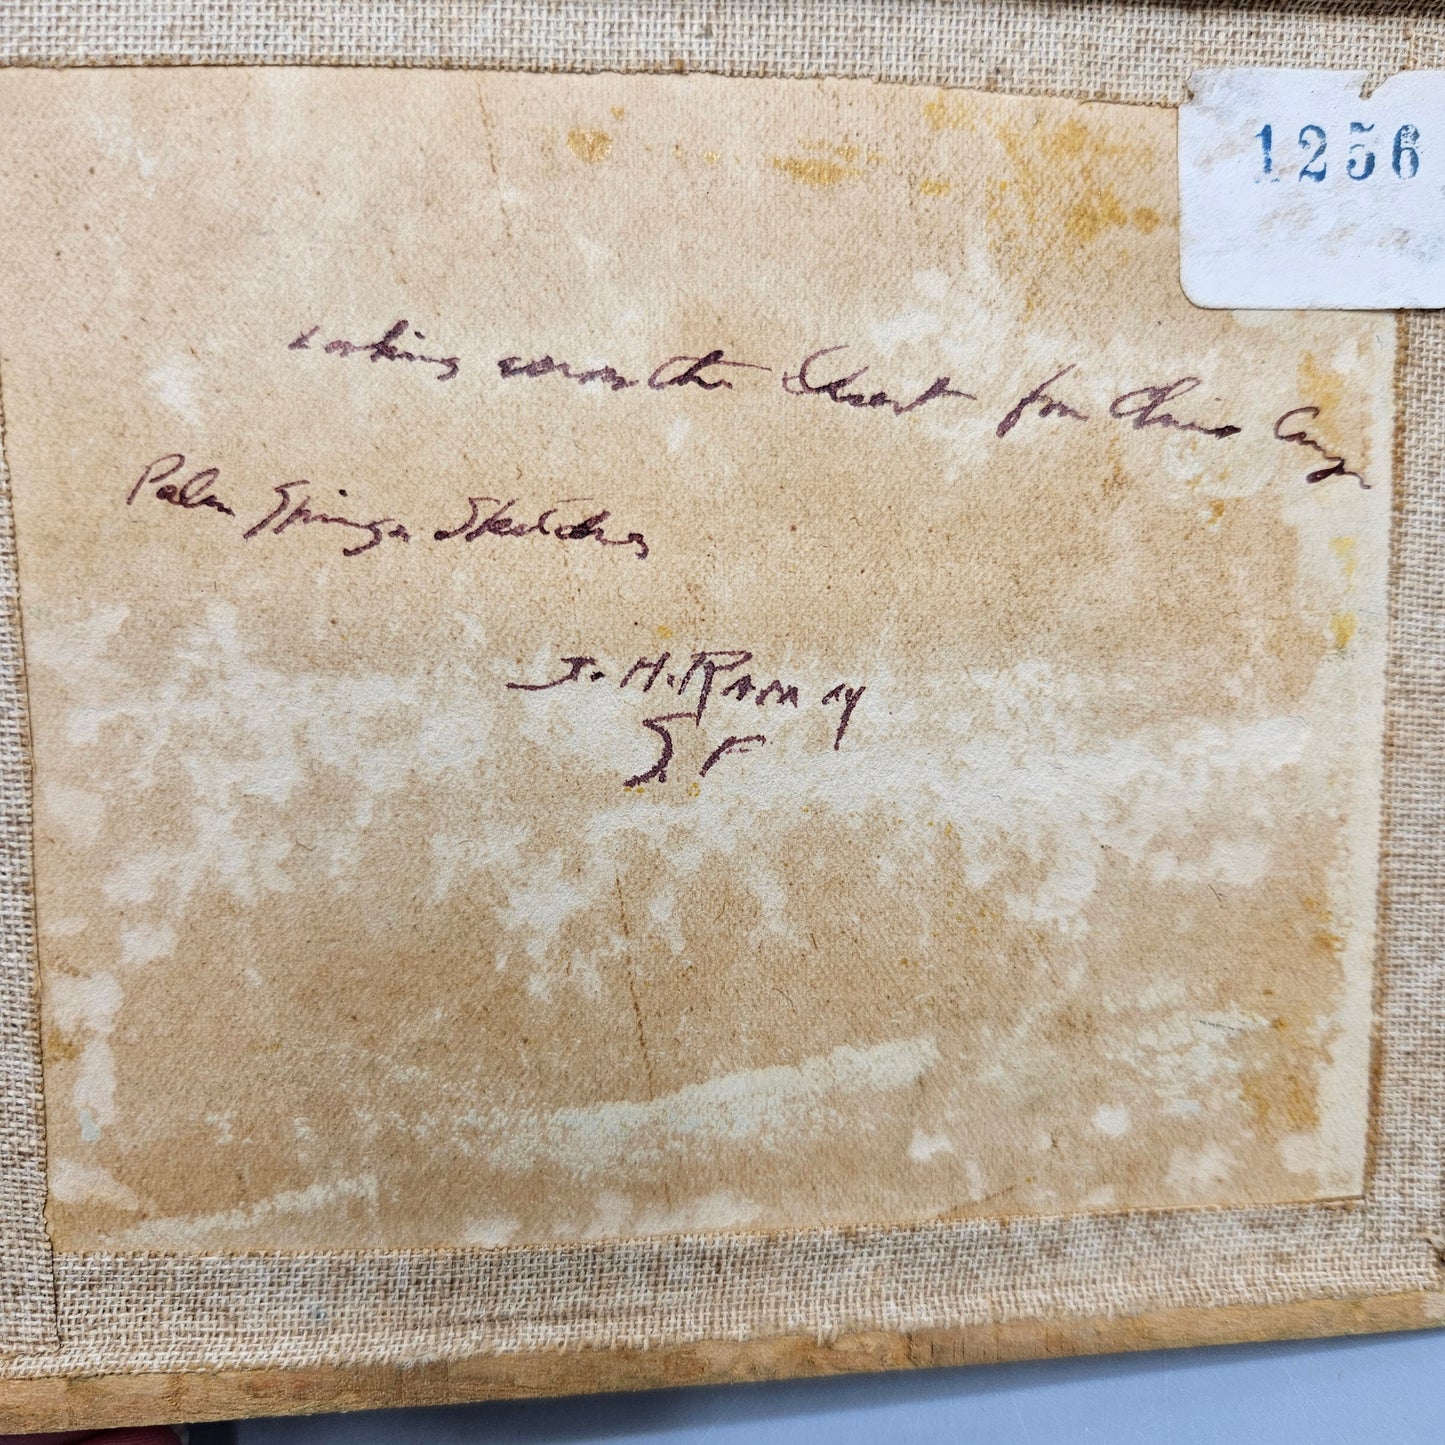 1256
Looking across the desert from Chino Canyon
Palm Springs Sketches
J. H. Ramay
S. F